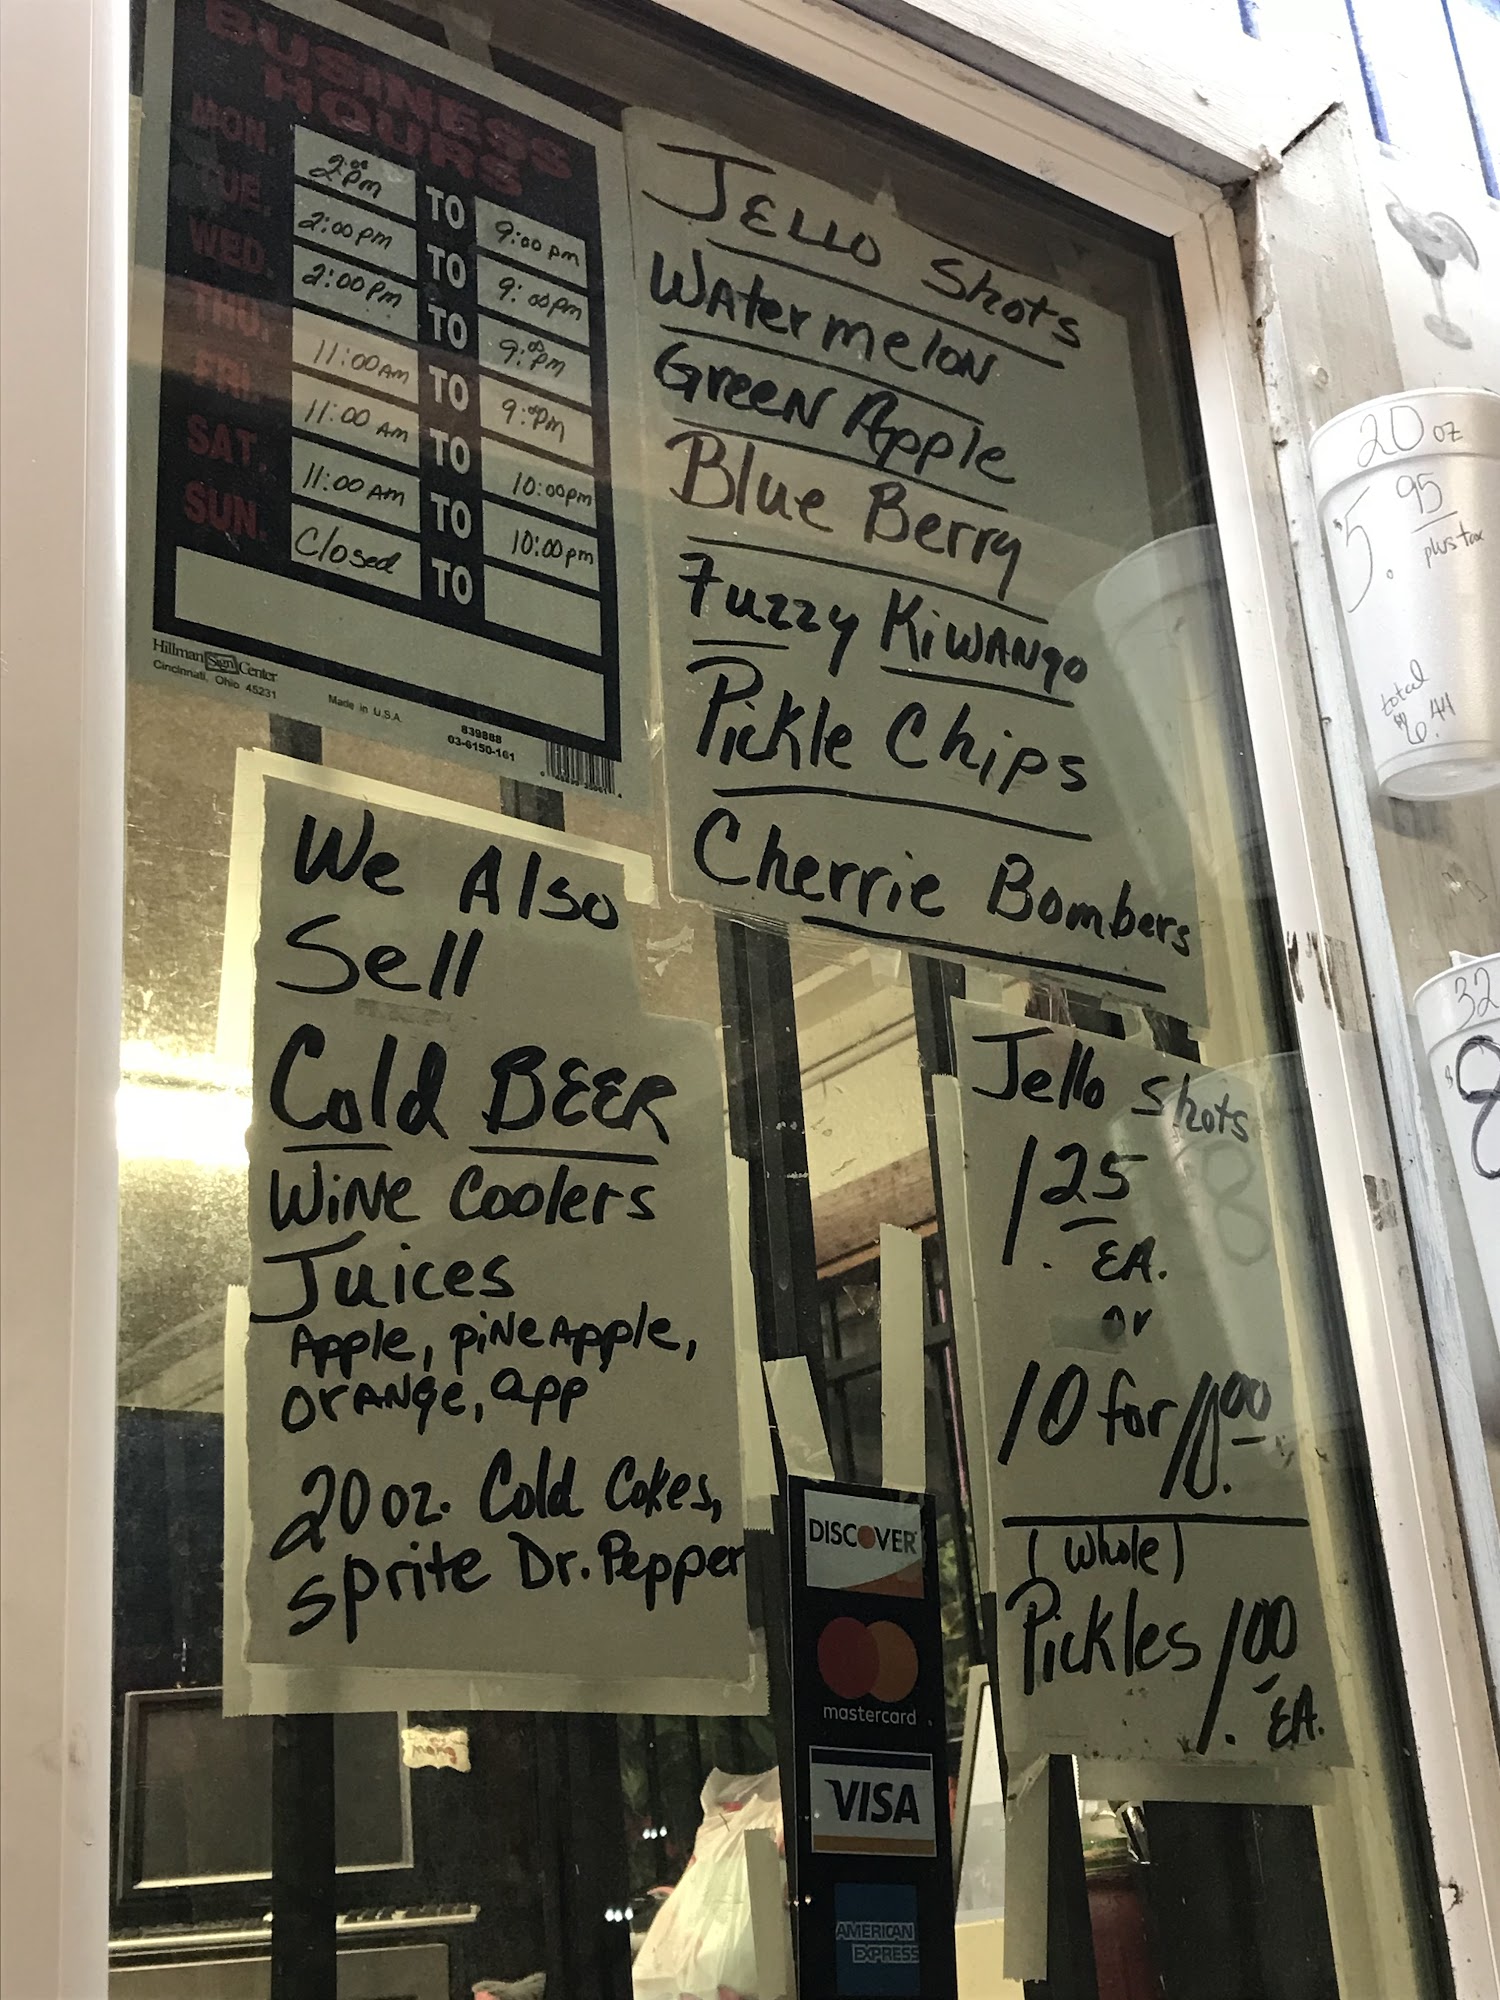 BUSINESS
HOURS
MON. 2:00 pm TO 9:00 pm
TUE. 2:00 pm TO 9:00pm
WED. 2:00 pm TO 9:00pm
THU. 11:00 AM TO 9:00PM
FRI. 11:00 AM TO 10:00pm
SAT. 11:00 AM TO 10:00pm
SUN. Closed TO
Hillman Sign Center
Cincinnati, Ohio 45231
Made in U.S.A.
839888
03-6150-161
JELLO Shots
WAtermeloN
GreeN Apple
Blue Berry
Fuzzy KiWANgo
Pickle Chips
Cherrie Bombers
We Also
Sell
Cold BEER
WiNe Coolers
Juices
Apple, piNeApple,
OrANge, app
20 oz. Cold Cokes,
sprite Dr. Pepper
Jello shots
1.25
EA.
or
10 for 10.00
(whole)
Pickles 1.00
EA.
DISCOVER
mastercard
VISA
AMERICAN
EXPRESS
20 oz
$5.95
plus tax
total
$6.44
32
$8